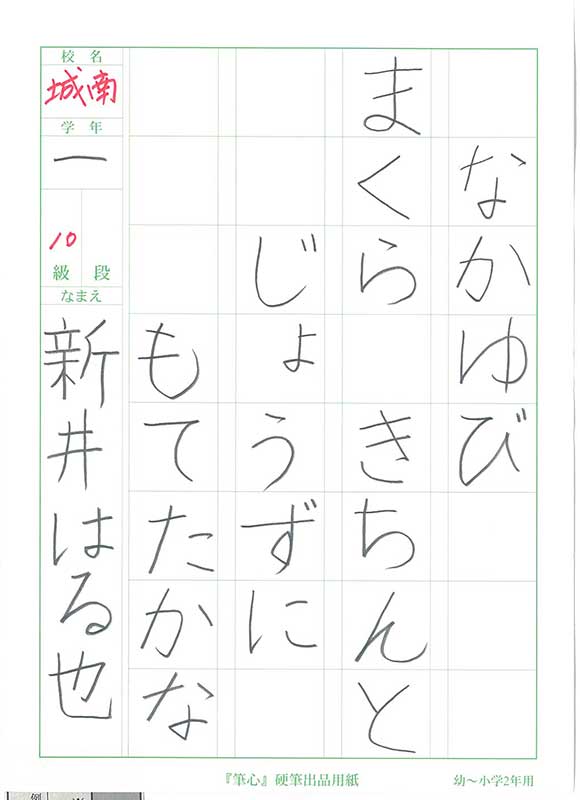 なかゆび
まくら きちんと
じょうずに
もてたかな
校名
城南
学年
一
10
級 段
なまえ
新井はる也
『筆心』硬筆出品用紙
幼〜小学2年用